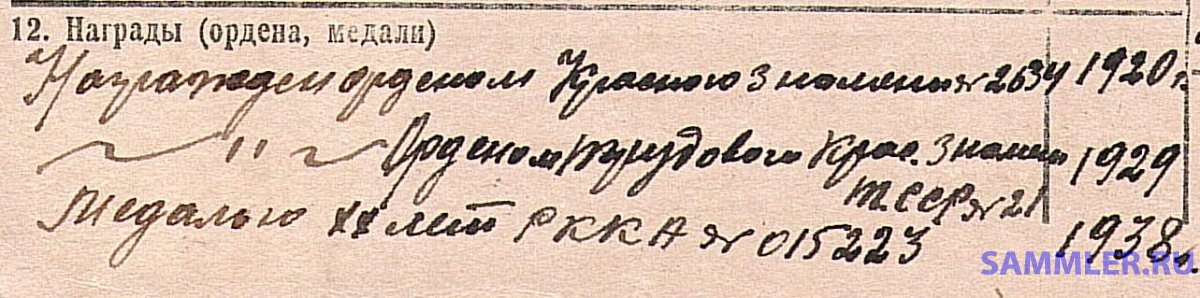 12. Награды (ордена, медали)
Награжден орденом Красного Знамени № 2634 1920 г.
〃 Орденом трудового Крас. Знамени 1929
Т.ССР № 21
Медалью XX лет РККА № 015223 1938 г.
SAMMLER.RU